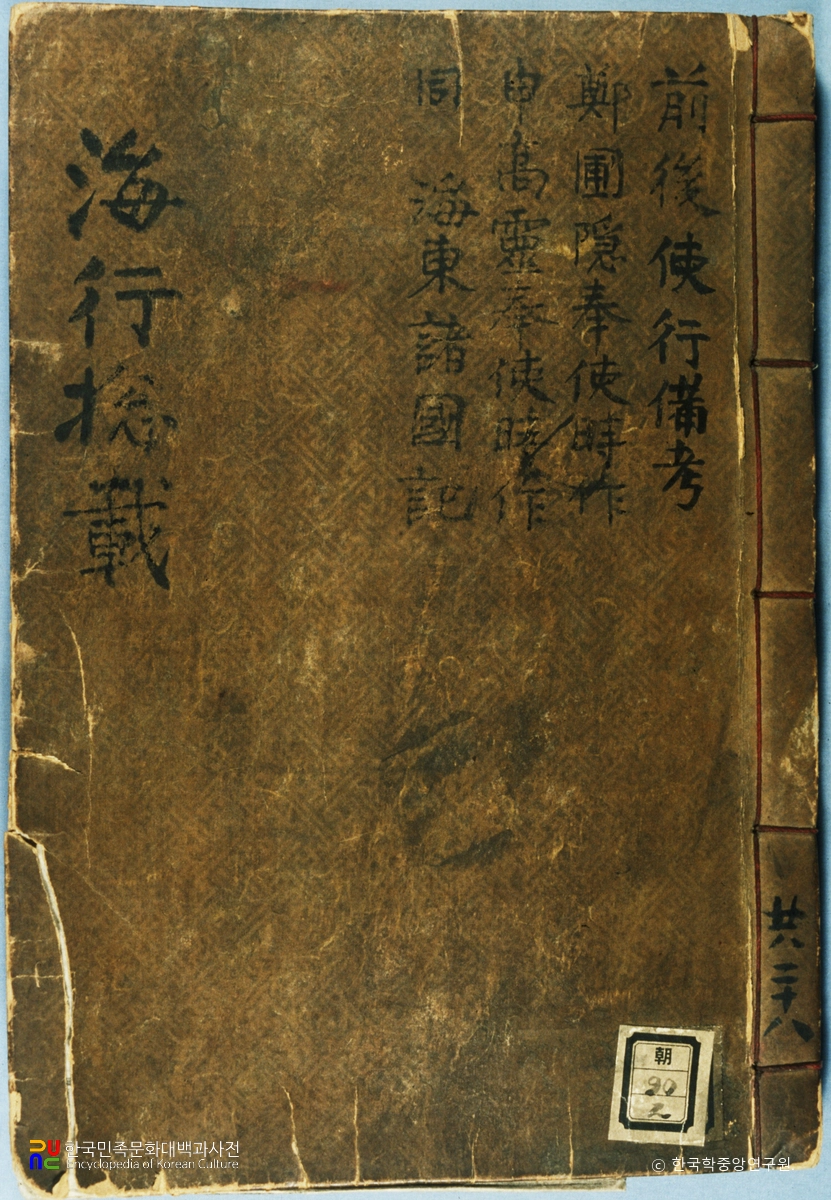 前後使行備考
鄭圃隠奉使時作
申高靈奉使時作
同 海東諸國記
海行捴載
共二十八
朝
90
한국민족문화대백과사전
Encyclopedia of Korean Culture
© 한국학중앙연구원